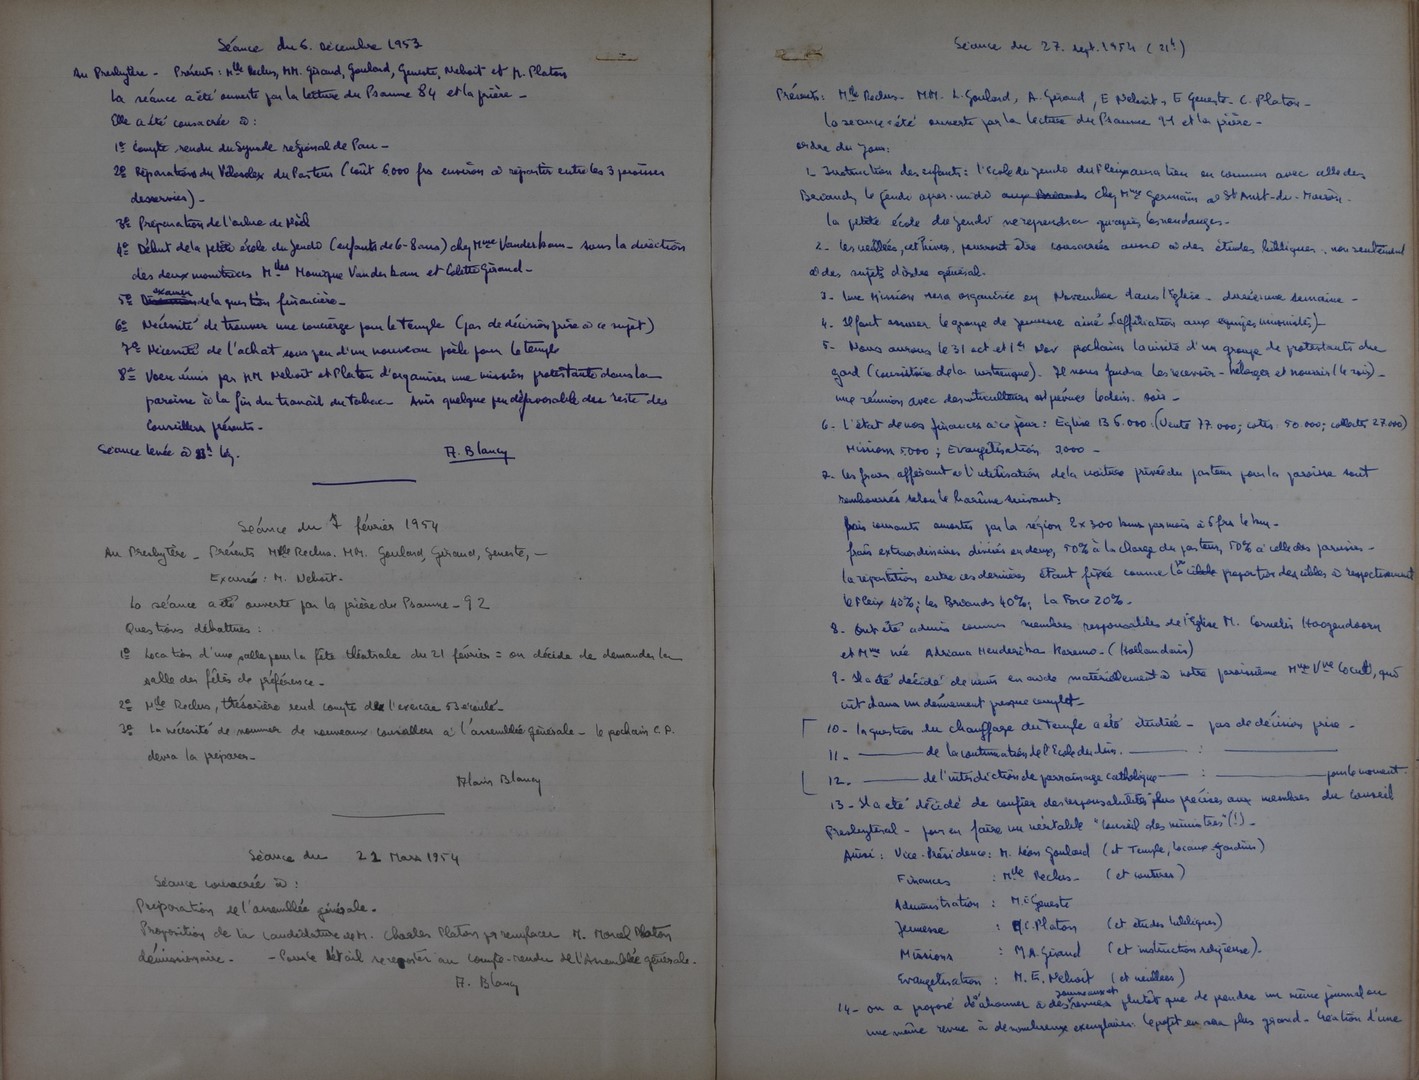 Séance du 6. décembre 1953
Au Presbytère - Présents : Mlle Reclus, MM. Giraud, Goulard, Geneste, Nehoit et M. Platon
La séance a été ouverte par la lecture du Psaume 84 et la prière -
Elle a été consacrée à :
1º Compte rendu du Synode régional de Pau -
2º Réparations du Vélosolex du Pasteur (coût 6.000 frs environ à répartir entre les 3 paroisses
desservies) -
3º Préparation de l'arbre de Noël
4º Début de la petite école du jeudi (enfants de 6-8 ans) chez Mme Vanderham - sous la direction
des deux monitrices Mlles Monique Vanderham et Colette Giraud -
5º examen de la question financière -
6º Nécessité de trouver une concierge pour le Temple (pas de décision prise à ce sujet)
7º Nécessité de l'achat sous peu d'un nouveau poêle pour le temple
8º Voeu émis par MM Nehoit et Platon d'organiser une mission protestante dans la
paroisse à la fin du travail du tabac - Avis quelque peu défavorable du reste des
Conseillers présents -
Séance levée à
A. Blancy
Séance du 7 février 1954
Au Presbytère - Présents Mlle Reclus. MM. Goulard, Giraud, Geneste, -
Excusé : M. Nehoit -
La séance a été ouverte par la prière du Psaume - 92
Questions débattues :
1º Location d'une salle pour la fête théâtrale du 21 février = on décide de demander la
salle des fêtes de préférence -
2º Mlle Reclus, trésorière rend compte de l'exercice 53 écoulé -
3º La nécessité de nommer de nouveaux conseillers à l'assemblée générale - le prochain C.P.
devra la préparer -
Alain Blancy
Séance du 21 Mars 1954
Séance consacrée à :
Préparation de l'assemblée générale -
Proposition de la candidature de M. Charles Platon pr remplacer M. Marcel Platon
démissionnaire - - Pour le détail se reporter au compte-rendu de l'Assemblée générale.
A. Blancy
Séance du 27. sept. 1954 (21h)
Présents : Mlle Reclus - MM. L. Goulard, A. Giraud, E Nehoit, E Geneste - C. Platon -
La séance a été ouverte par la lecture du Psaume 91 et la prière -
ordre du jour :
1. Instruction des enfants : l'école du jeudi du Fleix aura lieu en commun avec celle des
Briands, le jeudi après-midi chez Mme Germain à St Ant-de-
La petite école du jeudi ne reprendra qu'après les vendanges -
2. les veillées, cet hiver, pourront être consacrées aussi à des études bibliques, non seulement
à des sujets d'ordre général.
3. Une Mission sera organisée en Novembre dans l'Eglise - durée : une semaine -
4. Il faut assurer le groupe de jeunesse ainé (affiliation aux équipes unionistes) -
5. Nous aurons le 31 oct et 1er Nov prochains la visite d'un groupe de protestants du
gard (consistoire de la ). Il nous faudra les recevoir - héberger et nourrir (le soir) -
une réunion avec des viticulteurs est prévue le dim. soir -
6. L'état de nos finances à ce jour : Eglise 136.000 : (Vente 77.000 ; cotis. 50.000 ; collecte 27.000)
Missions 5.000 ; Evangélisation 3.000 -
7. les frais afférant à l'utilisation de la voiture privée du pasteur pour la paroisse sont
remboursés selon le barème suivant :
frais courants amortis par la région 2 x 300 kms par mois à 5 frs le km -
frais extraordinaires divisés en deux, 50% à la charge du pasteur, 50% à celle des paroisses -
la répartition entre ces dernières étant fixée comme la proportion des cibles à respectivement
le Fleix 40% ; les Briands 40% ; La Force 20% -
8. Ont été admis comme membres responsables de l'Eglise M. Cornelis Hoogendoorn
et Mme née Adriana Henderika - (Hollandais)
9. Il a été décidé de venir en aide matériellement à notre paroissienne Mme Vve , qui
vit dans un dénuement presque complet -
10. La question du chauffage du Temple a été étudiée - pas de décision prise -
11. ——— de la continuation de l'Ecole du dim. ——— : ———
12. ——— de l'interdiction de parrainage catholique ——— : ——— pour le moment.
13. Il a été décidé de confier des responsabilités plus précises aux membres du Conseil
Presbytéral - pour en faire un véritable "Conseil des ministres" (!) -
Ainsi : Vice-Présidence : M. Léon Goulard (et Temple, locaux - jardins)
Finances : Mlle Reclus - (et coutures)
Administration : M. Geneste
Jeunesse : C. Platon (et études bibliques)
Missions : M. A. Giraud (et instruction religieuse) -
Evangélisation : M. E. Nehoit (et veillées)
14. on a proposé de s'abonner à des journaux et revues plutôt que de prendre un même journal ou
une même revue à de nombreux exemplaires. Le profit en sera plus grand - Création d'une